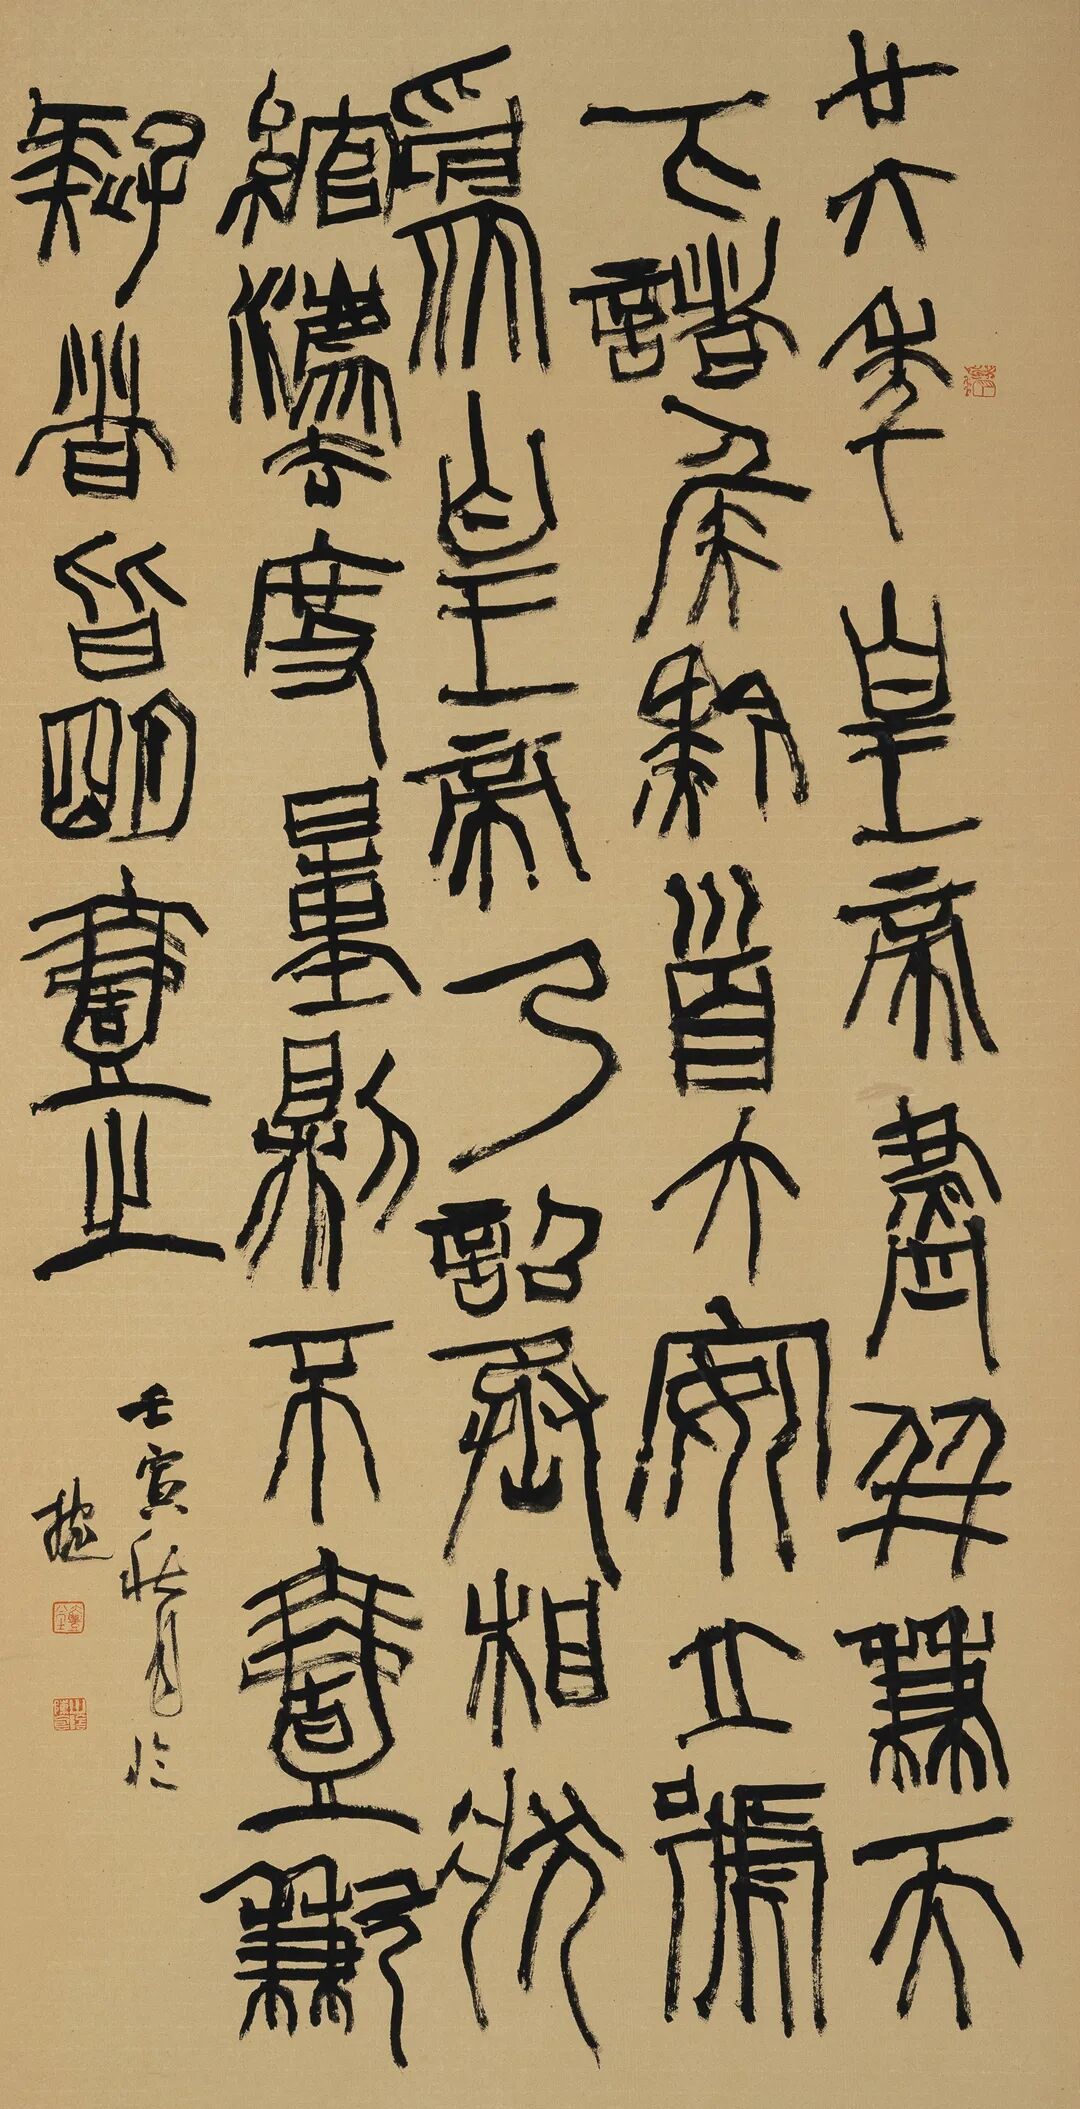 廿六年皇帝盡并兼天
下諸侯黔首大安立號
爲皇帝乃詔丞相狀
綰灋度量則不壹歉
疑者皆明壹之
壬寅秋月临